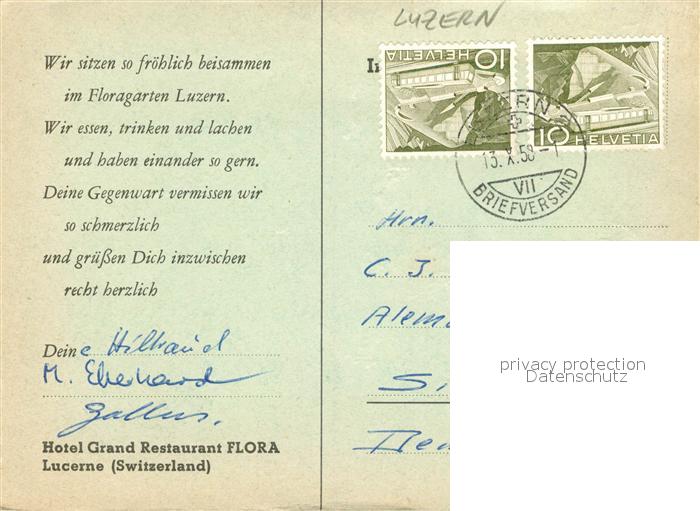 LUZERN
Wir sitzen so fröhlich beisammen
im Floragarten Luzern.
Wir essen, trinken und lachen
und haben einander so gern.
Deine Gegenwart vermissen wir
so schmerzlich
und grüßen Dich inzwischen
recht herzlich
Deine Hiltraud
M. Eberhard
Gallus.
Hotel Grand Restaurant FLORA
Lucerne (Switzerland)
10 HELVETIA
10 HELVETIA
13.X.58-1
VII
BRIEFVERSAND
Hrn.
C. J.
privacy protection
Datenschutz